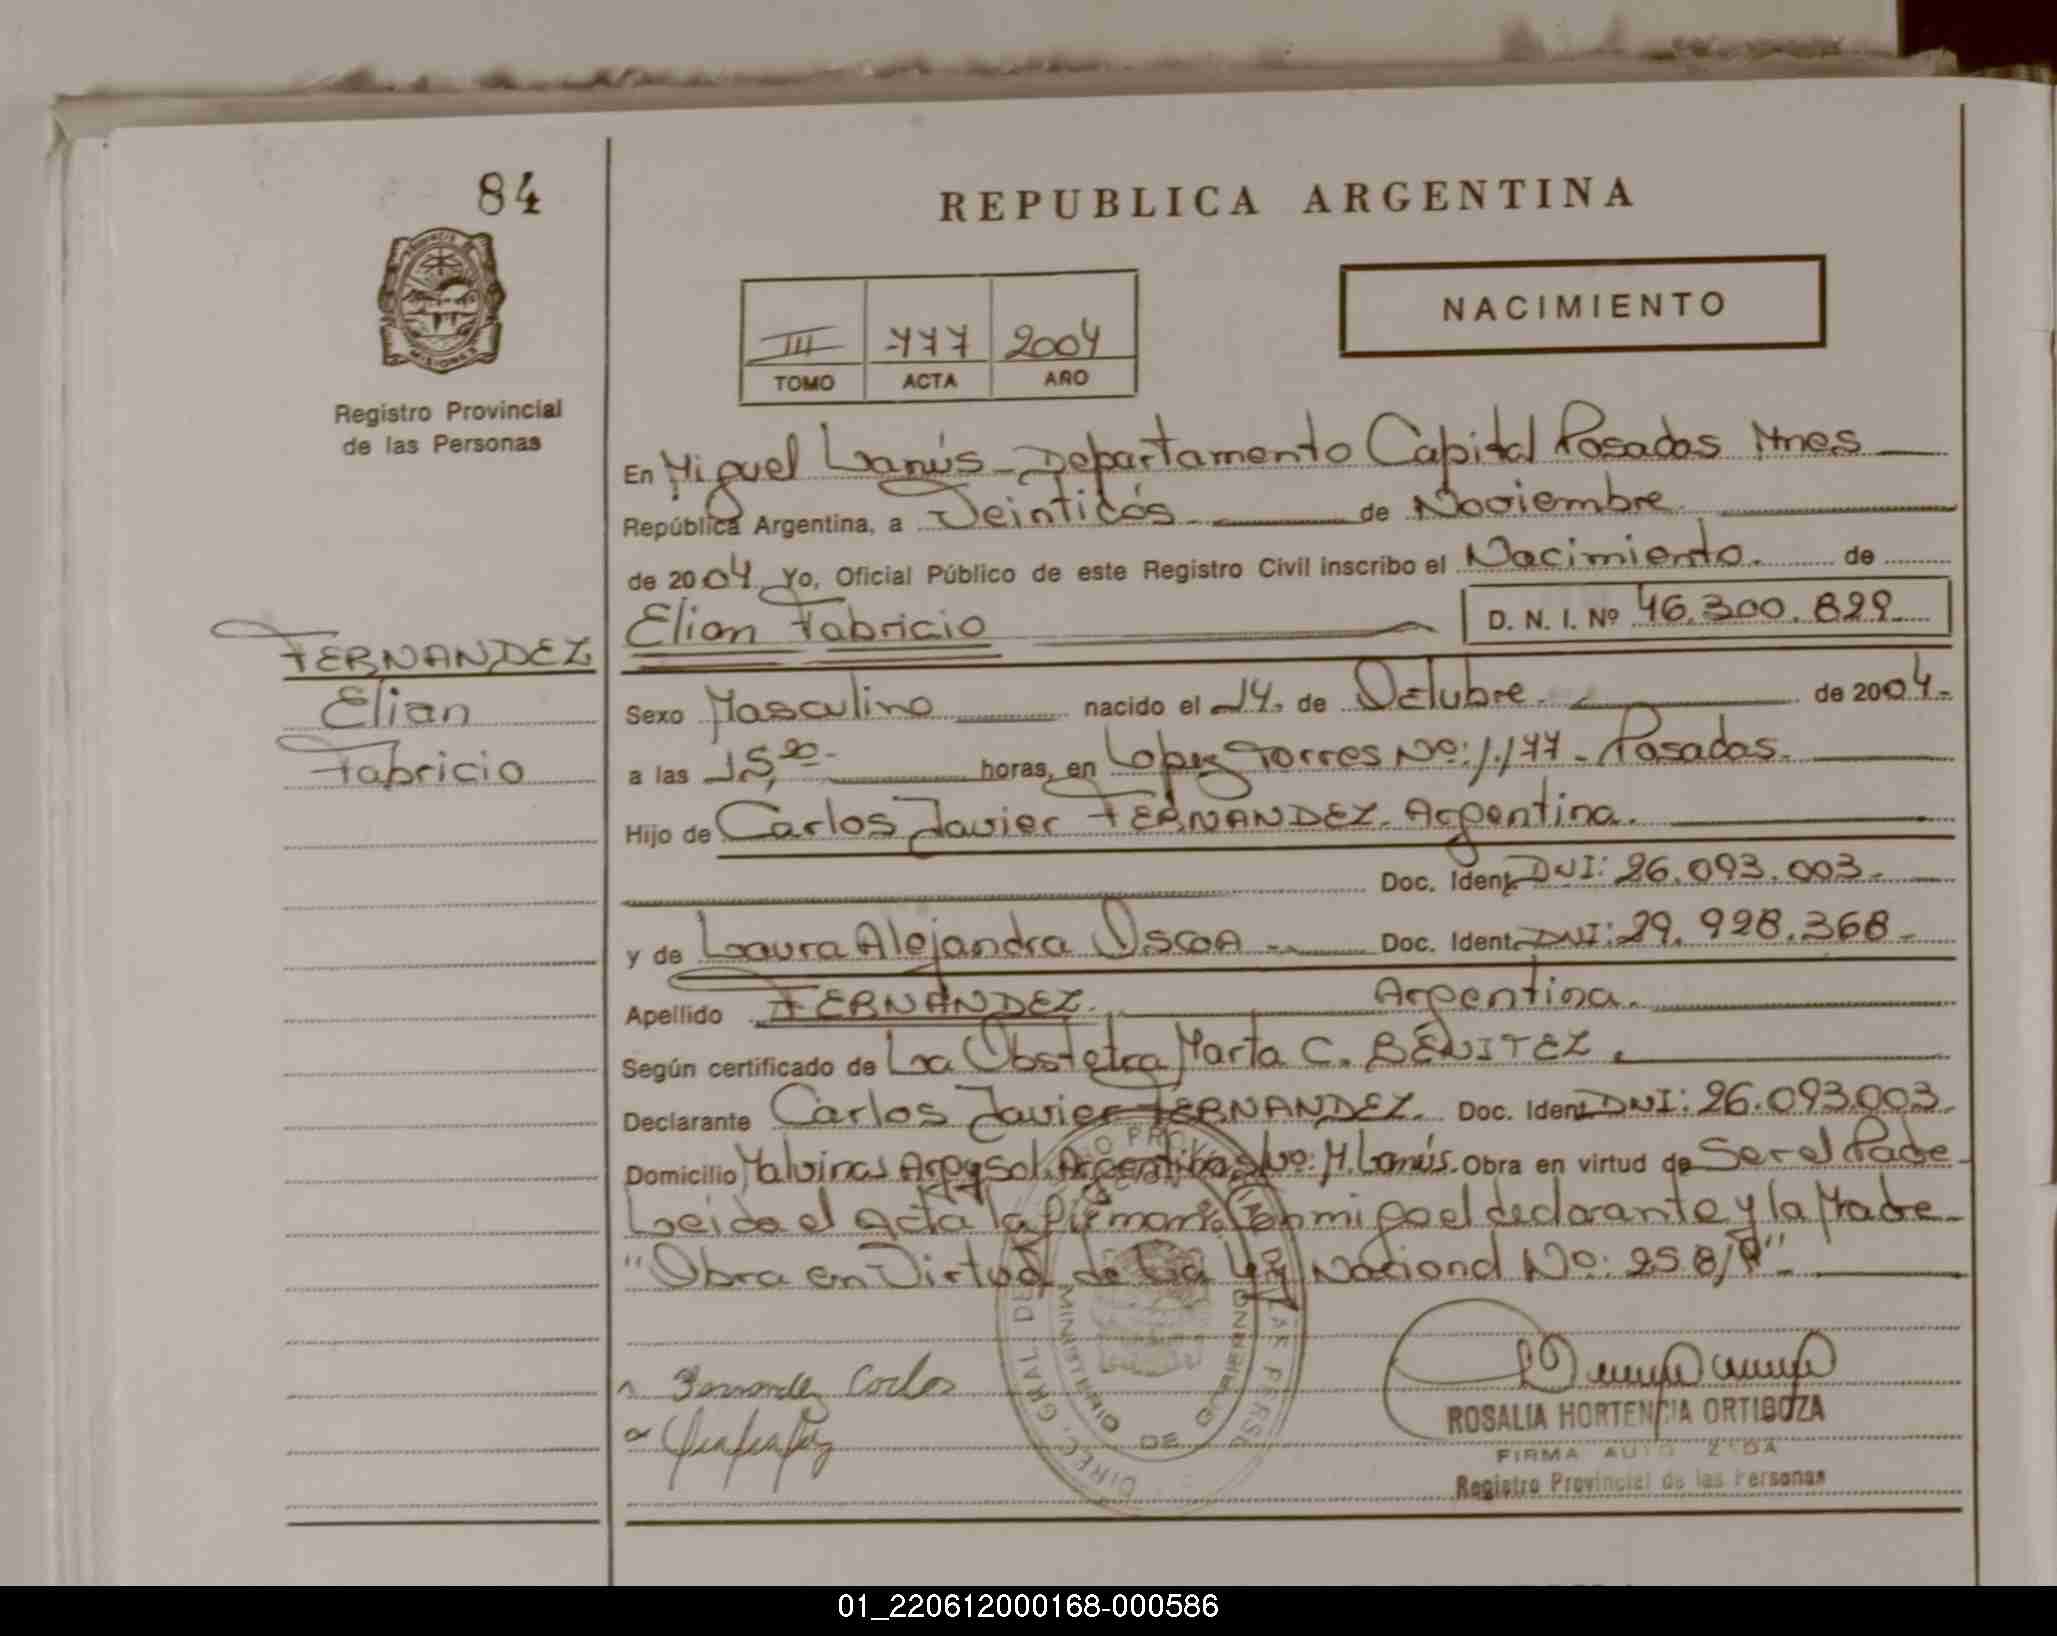 84
REPUBLICA ARGENTINA
PROVINCIA DE MISIONES
NACIMIENTO
III 777 2004
TOMO ACTA AÑO
Registro Provincial
de las Personas
En Miguel Lanús - Departamento Capital Posadas Mnes
República Argentina, a Veintidós de Noviembre
de 2004. Yo, Oficial Público de este Registro Civil inscribo el Nacimiento. de
Elian Fabricio D. N. I. Nº 46.300.822
FERNANDEZ
Elian
Fabricio
Sexo Masculino nacido el 14. de Octubre. de 2004.-
a las 15,20.- horas, en Lopez Torres Nº: 1.177 - Posadas.
Hijo de Carlos Javier FERNANDEZ. Argentina.
Doc. Ident. DNI: 26.093.003.-
y de Laura Alejandra Doc. Ident. DNI: 29.928.368.-
Apellido FERNANDEZ. Argentina.
Según certificado de La Obstetra Marta C. BENITEZ.
Declarante Carlos Javier FERNANDEZ. Doc. Ident. DNI: 26.093.003.
Domicilio Malvinas Argentinas M. Lanús. Obra en virtud de Ser el Padre
Leida el Acta la firman conmigo el declarante y la Madre
"Obra en Virtud de La Ley Nacional No: 25.819".
Fernandez Carlos
ROSALIA HORTENCIA ORTIGOZA
FIRMA AUTORIZADA
Registro Provincial de las Personas
DIREC. GRAL. DEL
MINISTERIO DE GOBIERNO
01_220612000168-000586